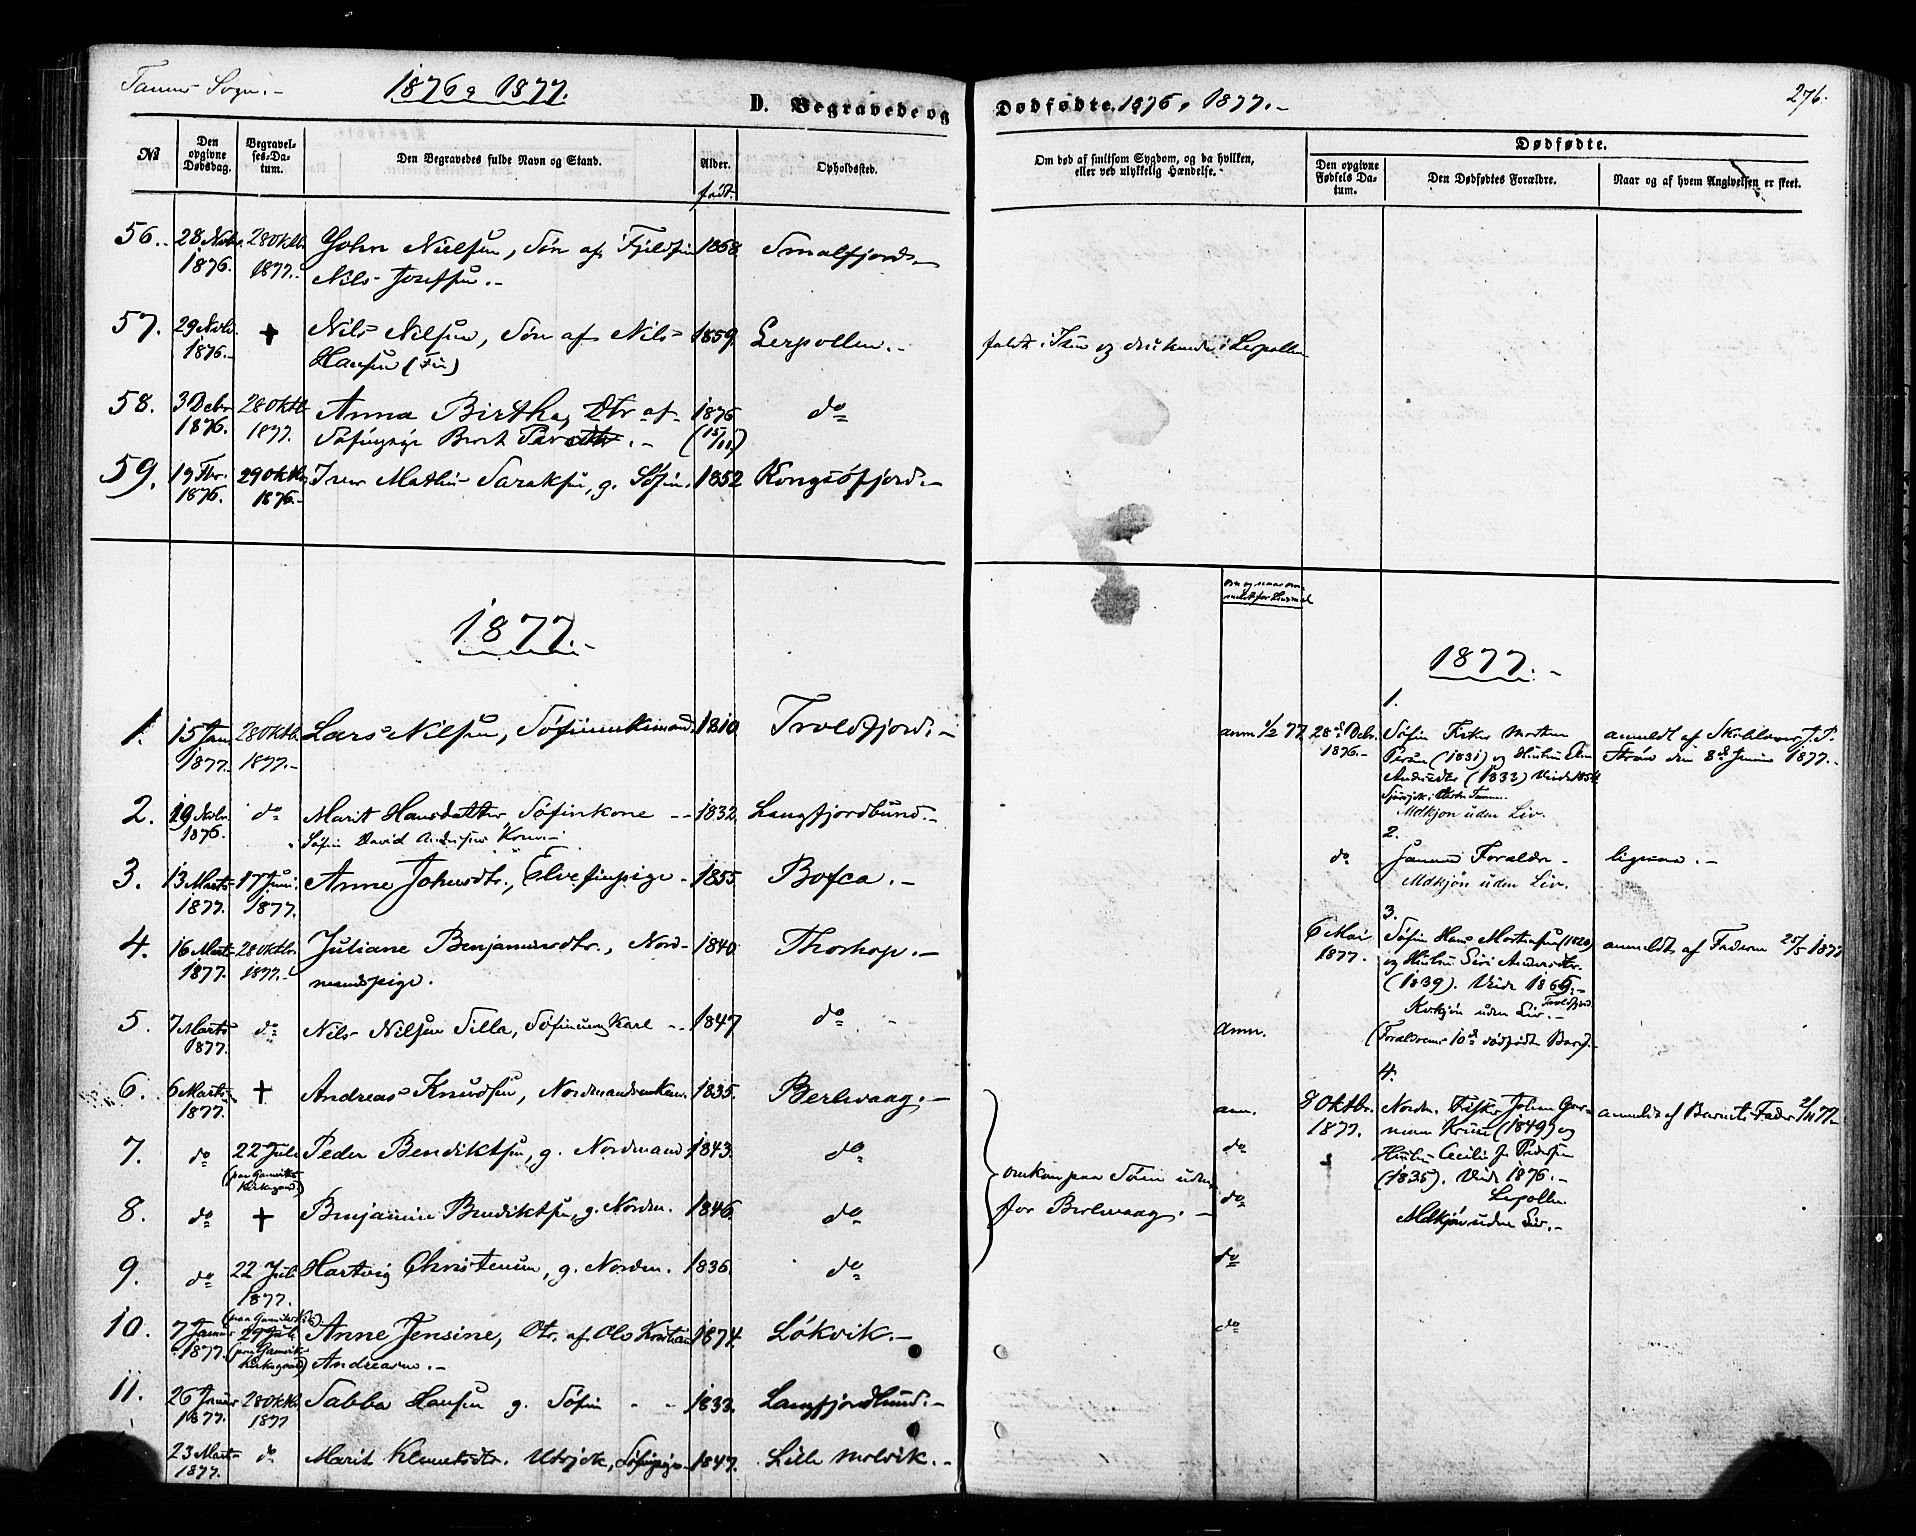 Tanens Sogn.-
1876 og 1877.
D. Begravede og
Dødfødte. 1876 og 1877.-
276.
No
Den opgivne Dødsdag.
Begravelses-Datum.
Den Begravedes fulde Navn og Stand.
Alder.
født.
Opholdssted.
Om død af smitsom Sygdom, og da hvilken, eller ved ulykkelig Hændelse.
Dødfødte.
Den opgivne Fødsels Datum.
Den Dødfødtes Forældre.
Naar og af hvem Angivelsen er skeet.
56. 28 Novbr. 28 Oktb. John Nielsen, Søn af Fjeldfin 1868. Smalfjord.-
1876. 1877.- Nils Josefsen.-
57. 29 Novbr. + Nils Nilsen, Søn af Nils 1859. Lerpollen.- faldt i Isen og druknede i Lerpollen
1876.- Hansen (Fin)
58. 3 Debr. 28 Oktb. Anna Birtha, Dtr af 1876 do
1876. 1877. Søfinpige Berit (15/11)
59. 19 Fbr. 29 Oktb. Iver Mathis Saraksen, g. Søfin. 1852 Kongsøfjord.-
1876. 1876.-
om og naar anmeldt for Lensmd
1877.-
1877.-
1. 15 Jan. 28 Oktb. Lars Nilsen, Søfinnenkemand. 1810. Troldfjord.-
1877. 1877.-
2. 19 Novbr. do Marit Hansdatter Søfinkone -- 1832. Langfjordbund.-
1876. Søfin David Andersens Kone.-
3. 13 Marts 17 Juni Anne Johnsdtr., Elvefinpige - 1855. Bofca.-
1877. 1877.
4. 16 Marts 28 Oktbr. Juliane Benjaminsdtr., Nord- 1840. Thorhop.-
1877. 1877.- mandspige.
5. 7 Marts do Nils Nilsen Silla, Søfinung Karl -- 1847 do
1877.
6. 6 Marts + Andreas Knudsen, Nordmandsenkem. 1835. Berlevaag.-
1877.
7. do 22 Juli Peder Bendiktsen, g. Nordmand 1843. do
(paa Gamviks Kirkegaard)
8. do + Benjamin Bendiktsen, g. Nordm. 1846. do
9. do 22 Juli Hartvig Christensen, g. Nordm. 1836. do
1877.
(paa Gamviks Kg)
10. 7 Januar 29 Juli Anne Jensine, Dtr. af Ole Kristian 1874. Løkvik.-
1877. (paa Gamvik Kirkegaard) Andreasen.-
11. 26 Januar 28 Oktb. Sabba Hansen g. Søfin - - 1833. Langfjordbund.-
1877. 1877
23 Marts do Marit Klemetsdtr. Utsjok, Søfinpige 1847. Lille Molvik.-
1877.
omkom paa Søen uden
for Berlevaag.-
anm 1/2 77
anm.
anm.
do
do
do
do
1.
28de Debr. Søfin Fisker Morten anmeldt af Skolelærer J. P.
1876.- Persen (1831) og Hustru Elen Strøm den 8de Januar 1877.-
Andersdtr (1833) Viede 1854
Mdkjøn uden Liv.
2.
do Samme Forældre - ligesaa.-
Mdkjøn uden Liv.
3.
6 Mai Søfin Hans Mathisen (1820) anmeldt af Faderen 25/5 1877
1877. og Hustru Siri Andersdtr.
(1839). Viede 1865.-
Kvkjøn uden Liv.- Troldfjord.
(Forældrenes 10de dødfødte Barn).-
4.
8 Oktbr. Nordm. Fisker Johan Ger- anmeldt af Barnets Fader 2/11 77.-
1877. man Kruse (1849) og
Hustru Cecilie J. Pedersen
(1835). Viede 1876.-
Lepollen
Mdkjøn uden Liv.-